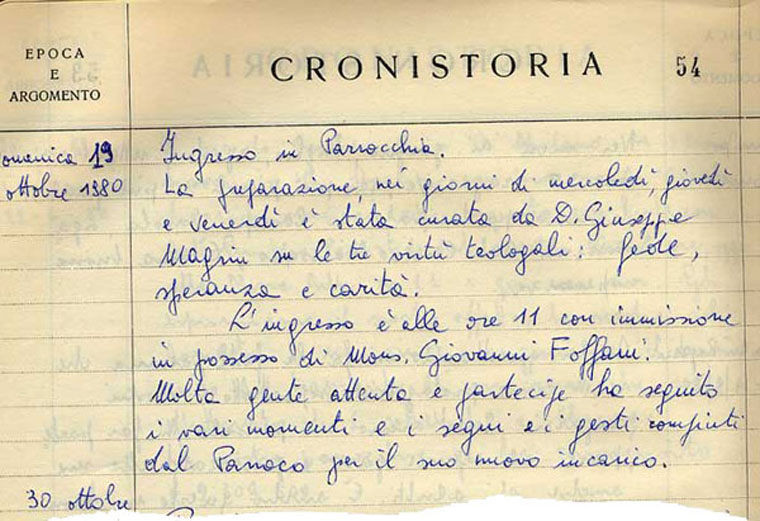 EPOCA
E
ARGOMENTO
CRONISTORIA
54
omenica 19
ottobre 1980
Ingresso in Parrocchia.
La preparazione, nei giorni di mercoledì, giovedì
e venerdì è stata curata da D. Giuseppe
Magrin su le tre virtù teologali: fede,
speranza e carità.
L'ingresso è alle ore 11 con immissione
in possesso di Mons. Giovanni Foffani.
Molta gente attenta e partecipe ha seguito
i vari momenti e i segni e i gesti compiuti
dal Parroco per il suo nuovo incarico.
30 ottobre